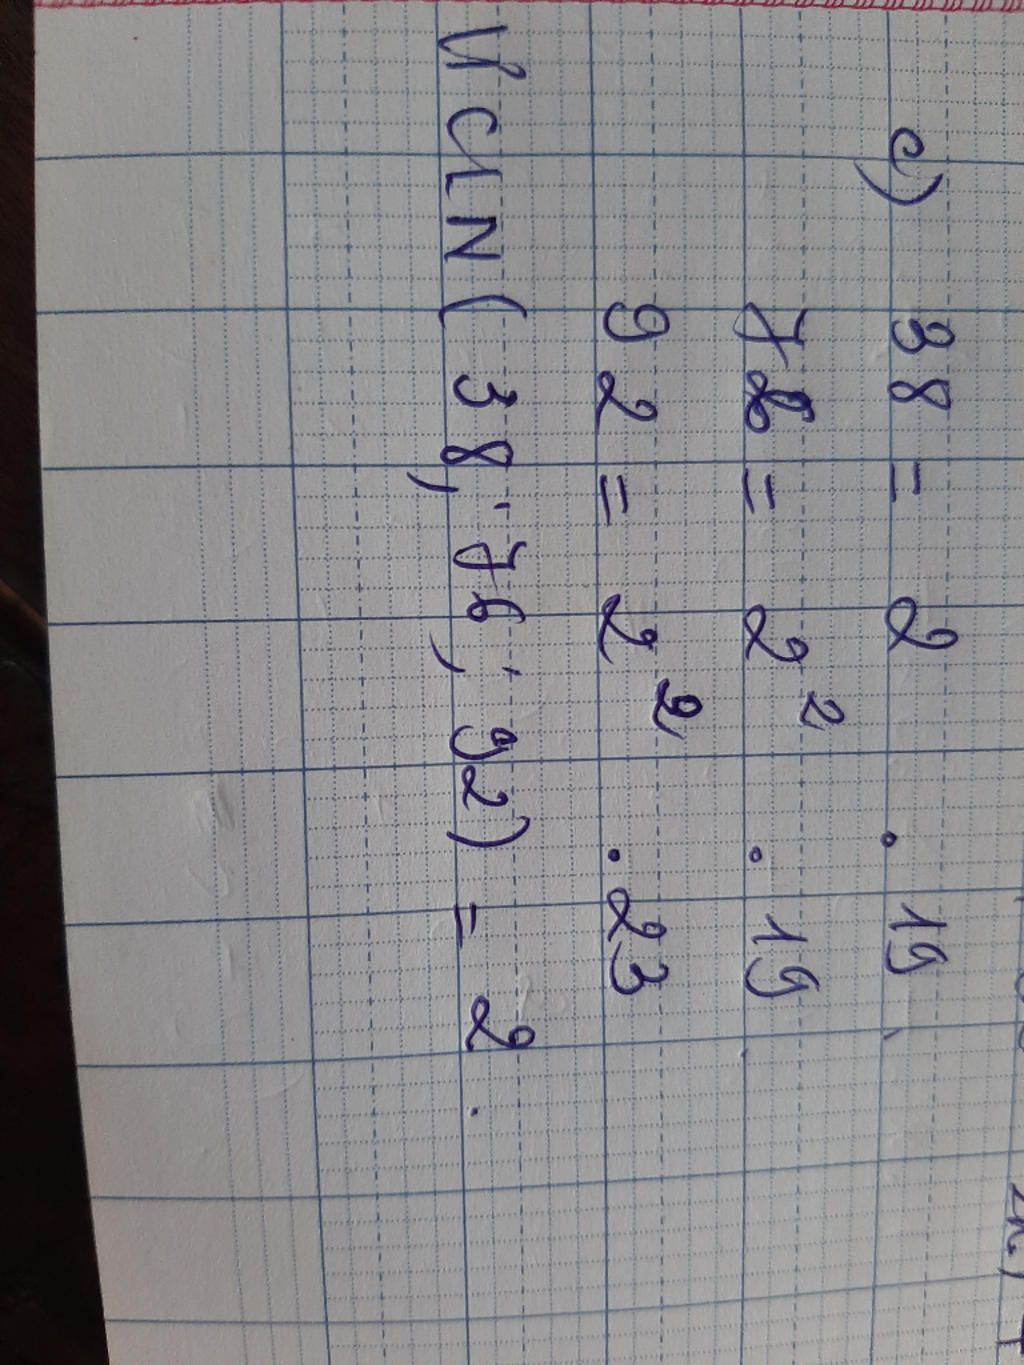 e) 38 = 2 . 19
76 = 2² . 19
92 = 2² . 23
ƯCLN (38 ; 76 ; 92) = 2 .